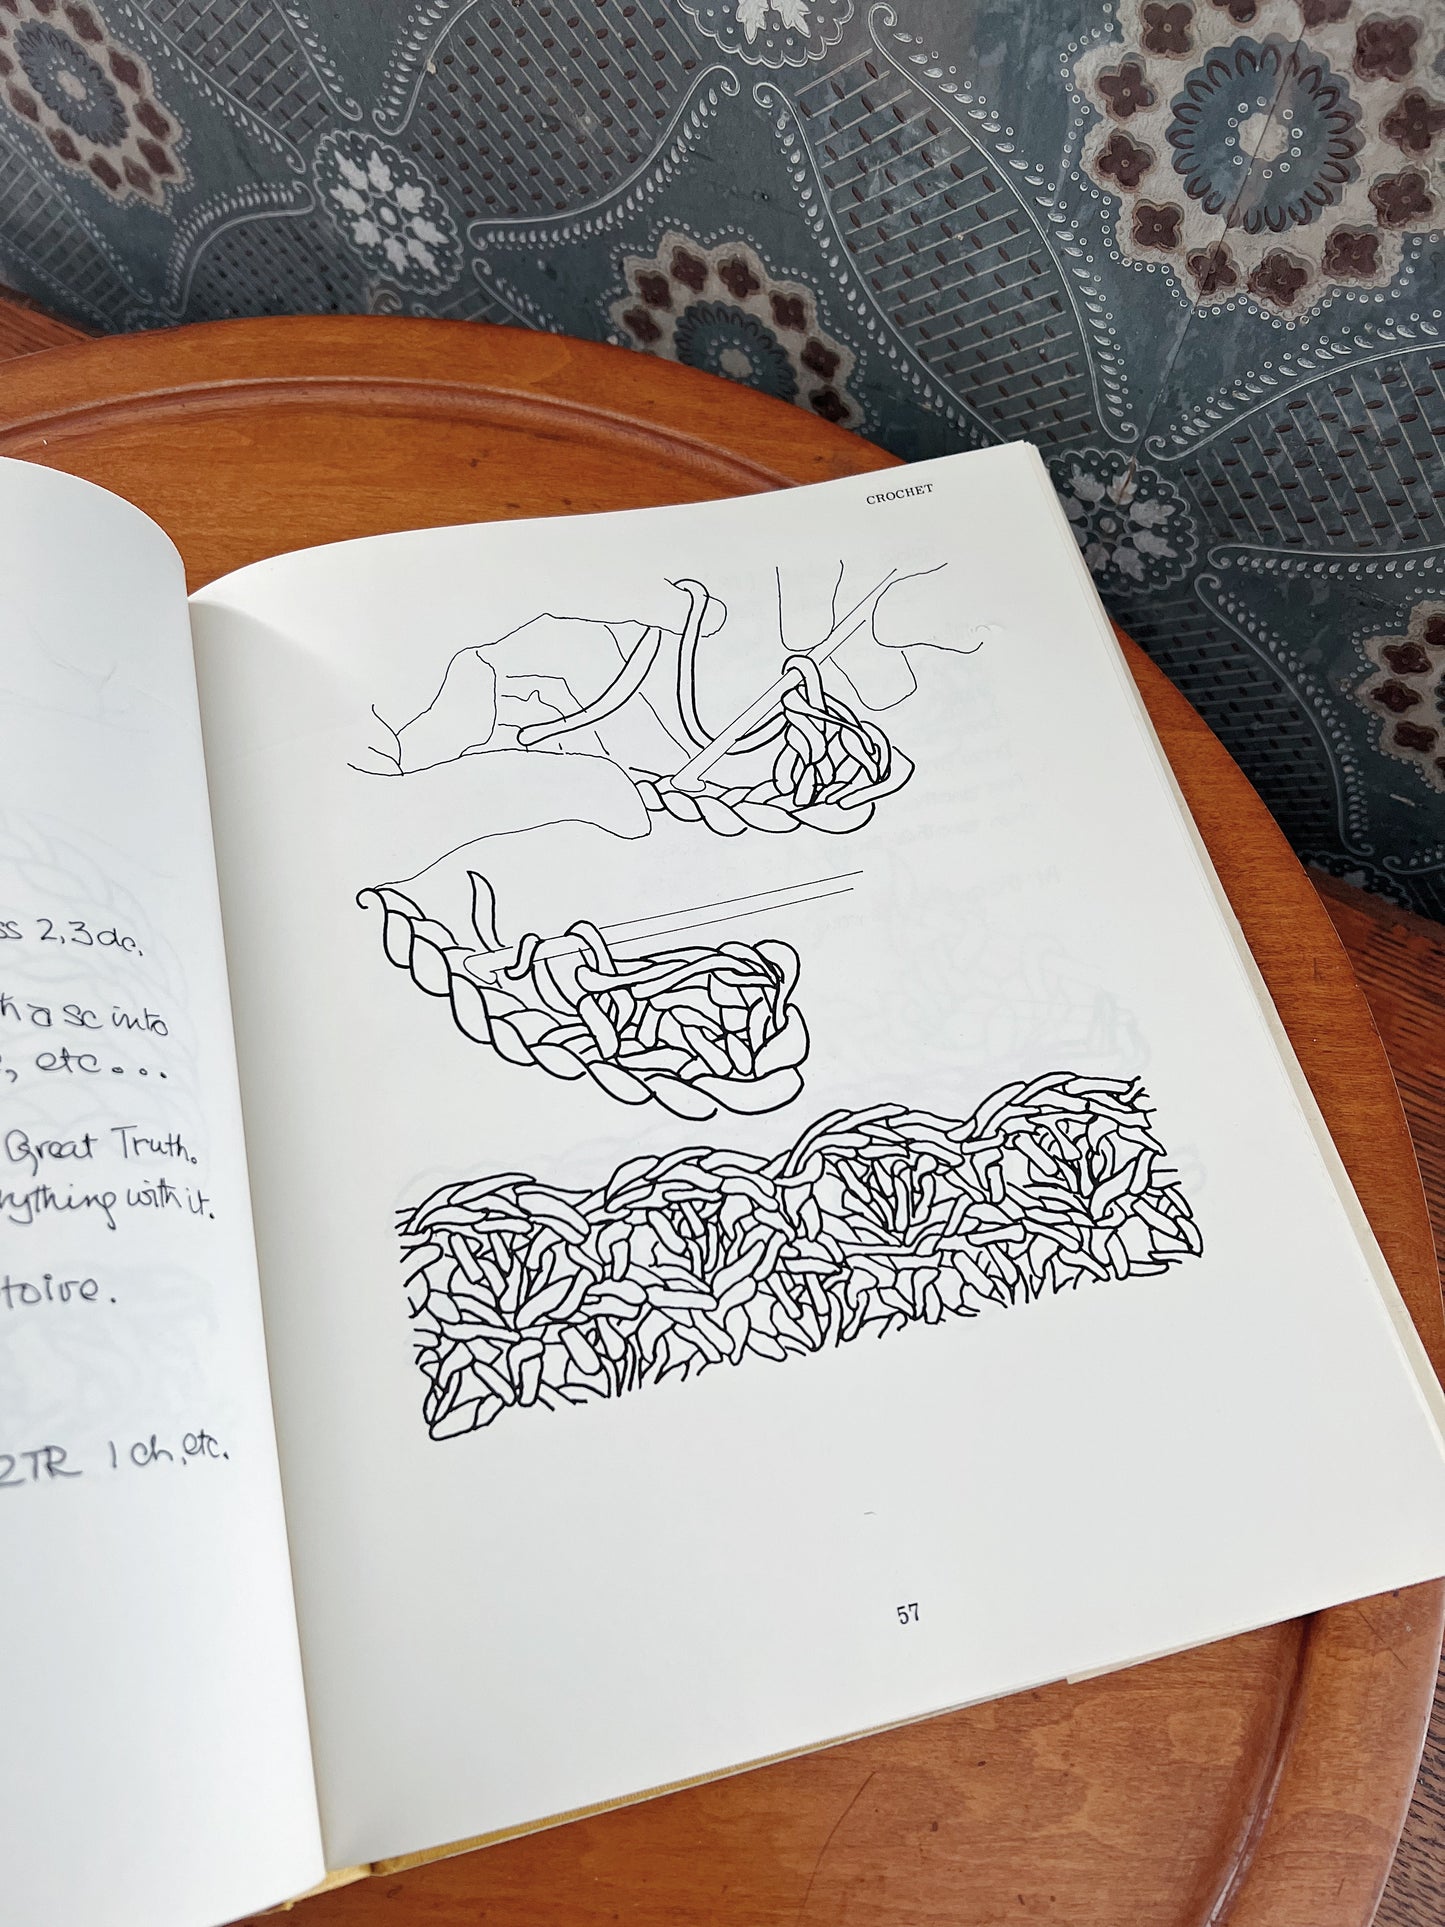 ss 2, 3 dc.
a sc into
, etc...
Great Truth.
nything with it.
toire.
2TR 1 ch, etc.
CROCHET
57